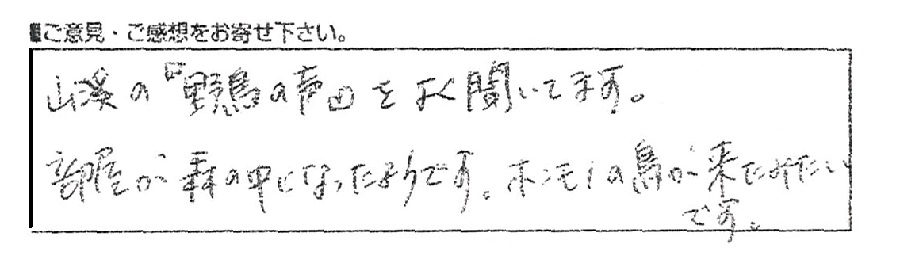 ■ご意見・ご感想をお寄せ下さい。
山渓の『野鳥の声』をよく聞いてます。
部屋が森の中になったようです。ホンモノの鳥が来たみたい
です。